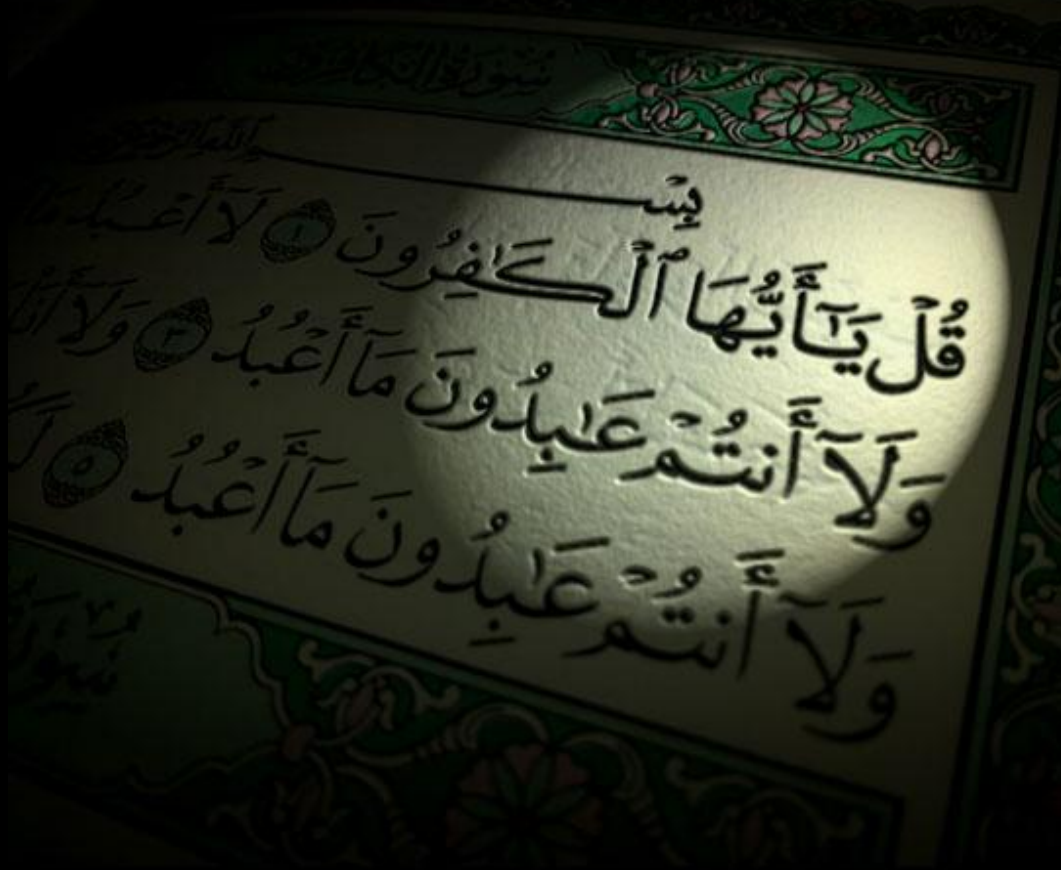 سُورَةُ الْكَافِرُونَ
بِسْمِ اللَّهِ الرَّحْمَٰنِ الرَّحِيمِ
قُلْ يَٰٓأَيُّهَا ٱلْكَٰفِرُونَ ١ لَآ أَعْبُدُ مَا
وَلَآ أَنتُمْ عَٰبِدُونَ مَآ أَعْبُدُ ٣ وَلَآ أَنَا۠
وَلَآ أَنتُمْ عَٰبِدُونَ مَآ أَعْبُدُ ٥
سُورَةُ